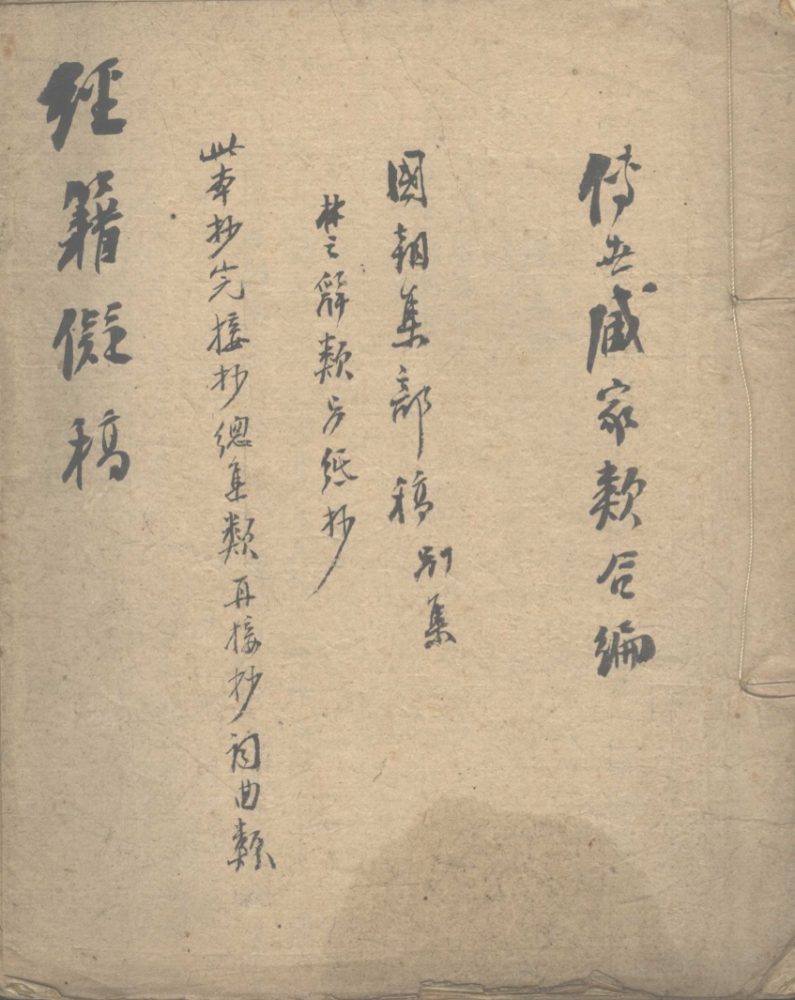 傳世臧家類合編
國朝集部稿 別集
楚辭類另紙抄
此本抄完接抄總集類再接抄詞曲類
經籍儗稿